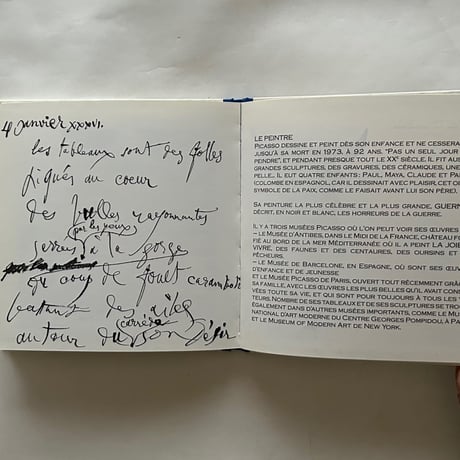 4 janvier XXXVI.
les tableaux sont des folles
piqués au coeur
des bulles rayonnantes
par les yeux
serres à la gorge
du coup de fouet caramboli
autour du son désir
carrére
LE PEINTRE
PICASSO DESSINE ET PEINT DÈS SON ENFANCE ET NE CESSERA
JUSQU'À SA MORT EN 1973, À 92 ANS. "PAS UN SEUL JOUR
PEINDRE", ET PENDANT PRESQUE TOUT LE XXE SIÈCLE. IL FIT AUS
GRANDES SCULPTURES, DES GRAVURES, DES CÉRAMIQUES, UNE
PELLE.. IL EUT QUATRE ENFANTS : PAUL, MAYA, CLAUDE ET PA
(COLOMBE EN ESPAGNOL, CAR IL DESSINAIT AVEC PLAISIR CET OI
SYMBOLE DE LA PAIX, COMME LE FAISAIT AVANT LUI SON PÈRE).
SA PEINTURE LA PLUS CÉLÈBRE ET LA PLUS GRANDE, GUERN
DÉCRIT, EN NOIR ET BLANC, LES HORREURS DE LA GUERRE.
IL Y A TROIS MUSÉES PICASSO OÙ L'ON PEUT VOIR SES ŒUVRES
– LE MUSÉE D'ANTIBES, DANS LE MIDI DE LA FRANCE, CHÂTEAU F
FIÉ AU BORD DE LA MER MÉDITERRANÉE OÙ IL A PEINT LA JOIE
VIVRE, DES FAUNES ET DES CENTAURES, DES OURSINS ET
PÊCHEURS.
– LE MUSÉE DE BARCELONE, EN ESPAGNE, OÙ SONT SES ŒUV
D'ENFANCE ET DE JEUNESSE
– LE MUSÉE PICASSO DE PARIS, OUVERT TOUT RÉCEMMENT GRÂC
SA FAMILLE, AVEC LES ŒUVRES LES PLUS BELLES QU'IL AVAIT CONS
VÉES TOUTE SA VIE, ET QUI SONT POUR TOUJOURS À TOUS LES
TEURS. NOMBRE DE SES TABLEAUX ET DE SES SCULPTURES SE TRO
ÉGALEMENT DANS D'AUTRES MUSÉES IMPORTANTS, COMME LE MUS
NATIONAL D'ART MODERNE DU CENTRE GEORGES POMPIDOU, À PA
ET LE MUSEUM OF MODERN ART DE NEW YORK.